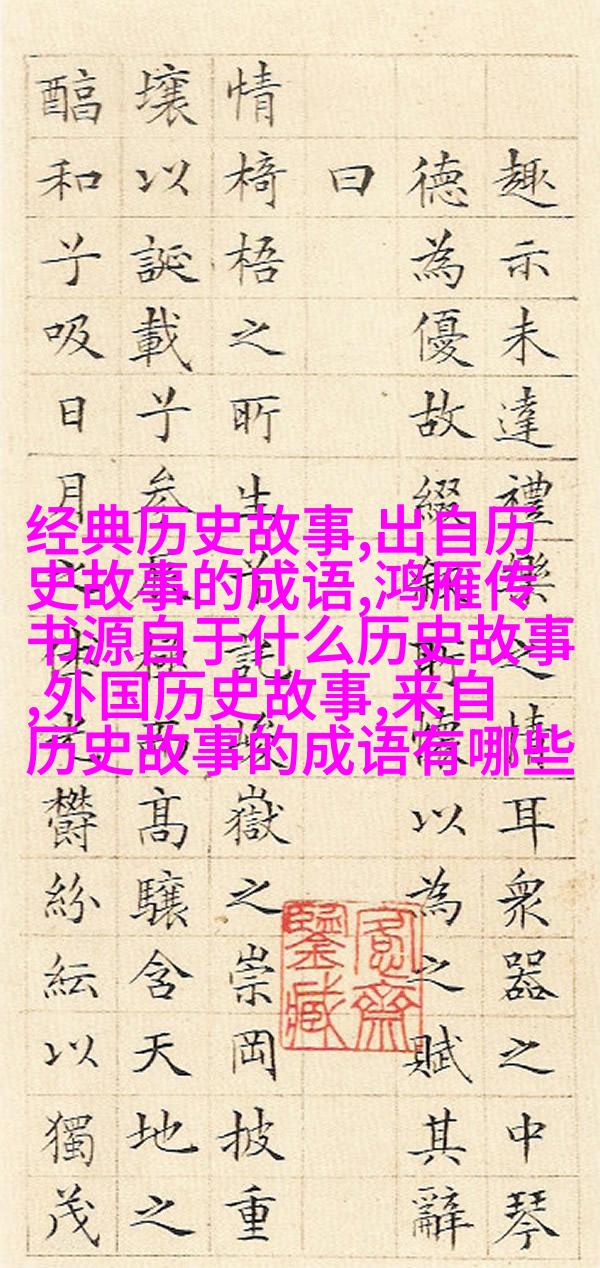 趣示未達禮樂之情耳衆器之中琴
德為優故綴敘所懷以為之賦其辭
曰
情椅梧之所生兮託峻嶽之崇岡披重
壤以誕載兮參辰極而高驤含天地之
醕和兮吸日月之休光鬱紛紜以獨茂
经典历史故事,出自历
史故事的成语,鸿雁传
书源自于什么历史故事
,外国历史故事,来自
历史故事的成语有哪些
愙齋
鑒藏